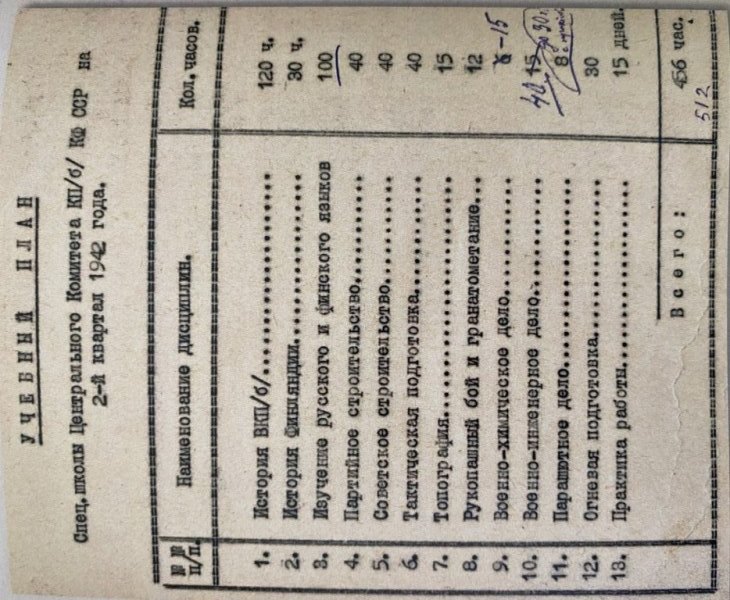 УЧЕБНЫЙ ПЛАН
Спец.школы Центрального Комитета КП/б/ КФ ССР на
2-й квартал 1942 года.
№№ п/п. Наименование дисциплин. Кол.часов.
1. История ВКП/б/ 120 ч.
2. История Финляндии 30 ч.
3. Изучение русского и финского языков 100
4. Партийное строительство 40
5. Советское строительство 40
6. Тактическая подготовка 40
7. Топография 15
8. Рукопашный бой и гранатометание 12
9. Военно-химическое дело 6-15
10. Военно-инженерное дело 15 40 до 30ч.
11. Парашютное дело 8
12. Огневая подготовка 30
13. Практика работы 15 дней.
Всего: 456 час.
512